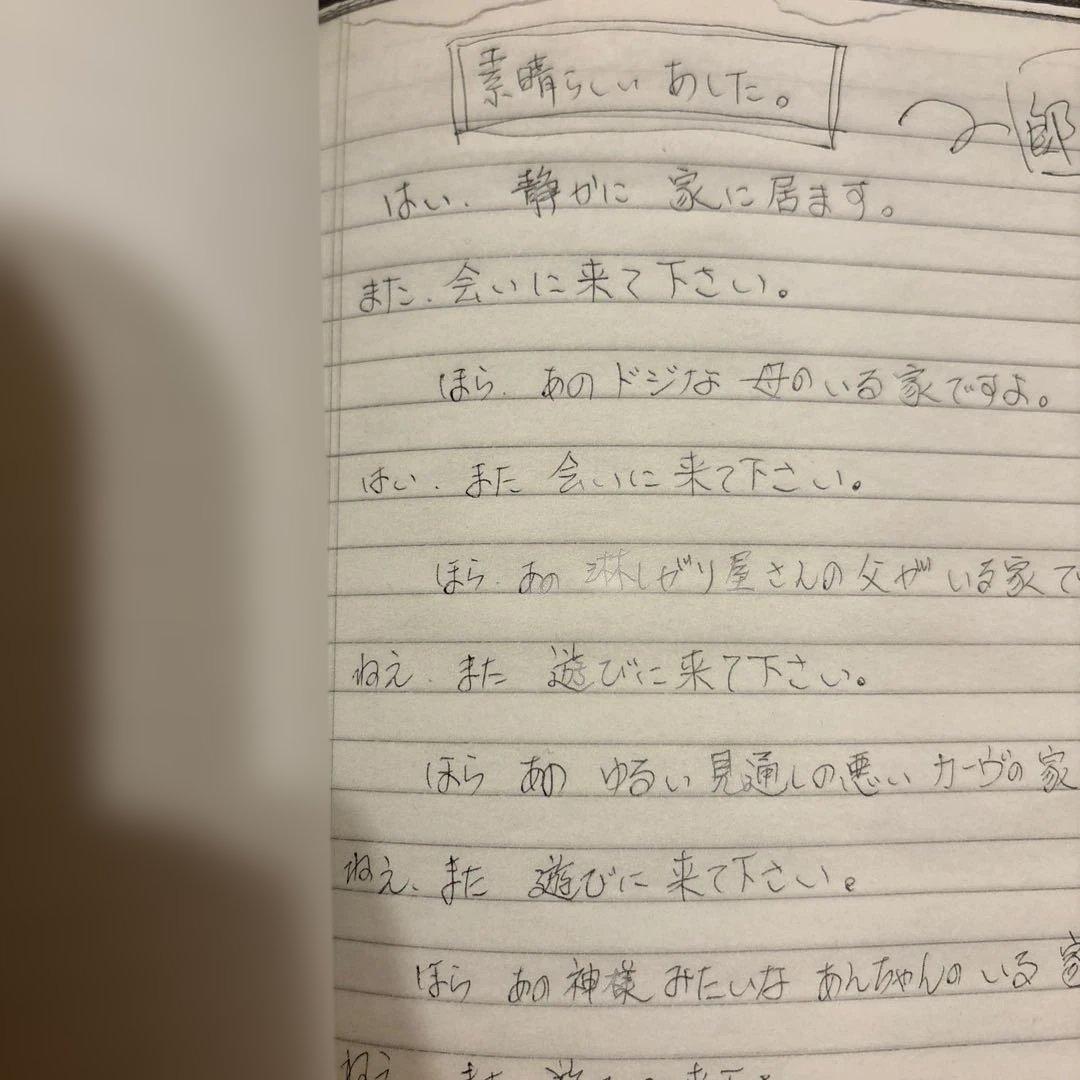 素晴らしい あした。
郎
はい、静かに 家に居ます。
また、会いに来て下さい。
ほら、あのドジな 母のいる家ですよ。
はい、また 会いに来て下さい。
ほら、あの 淋しがり屋さんの父がいる家で
ねえ、また 遊びに来て下さい。
ほら あの ゆるい 見通しの悪い カーヴの家
ねえ、また 遊びに来て下さい。
ほら あの神様みたいな あんちゃんのいる 家
ねえ、また